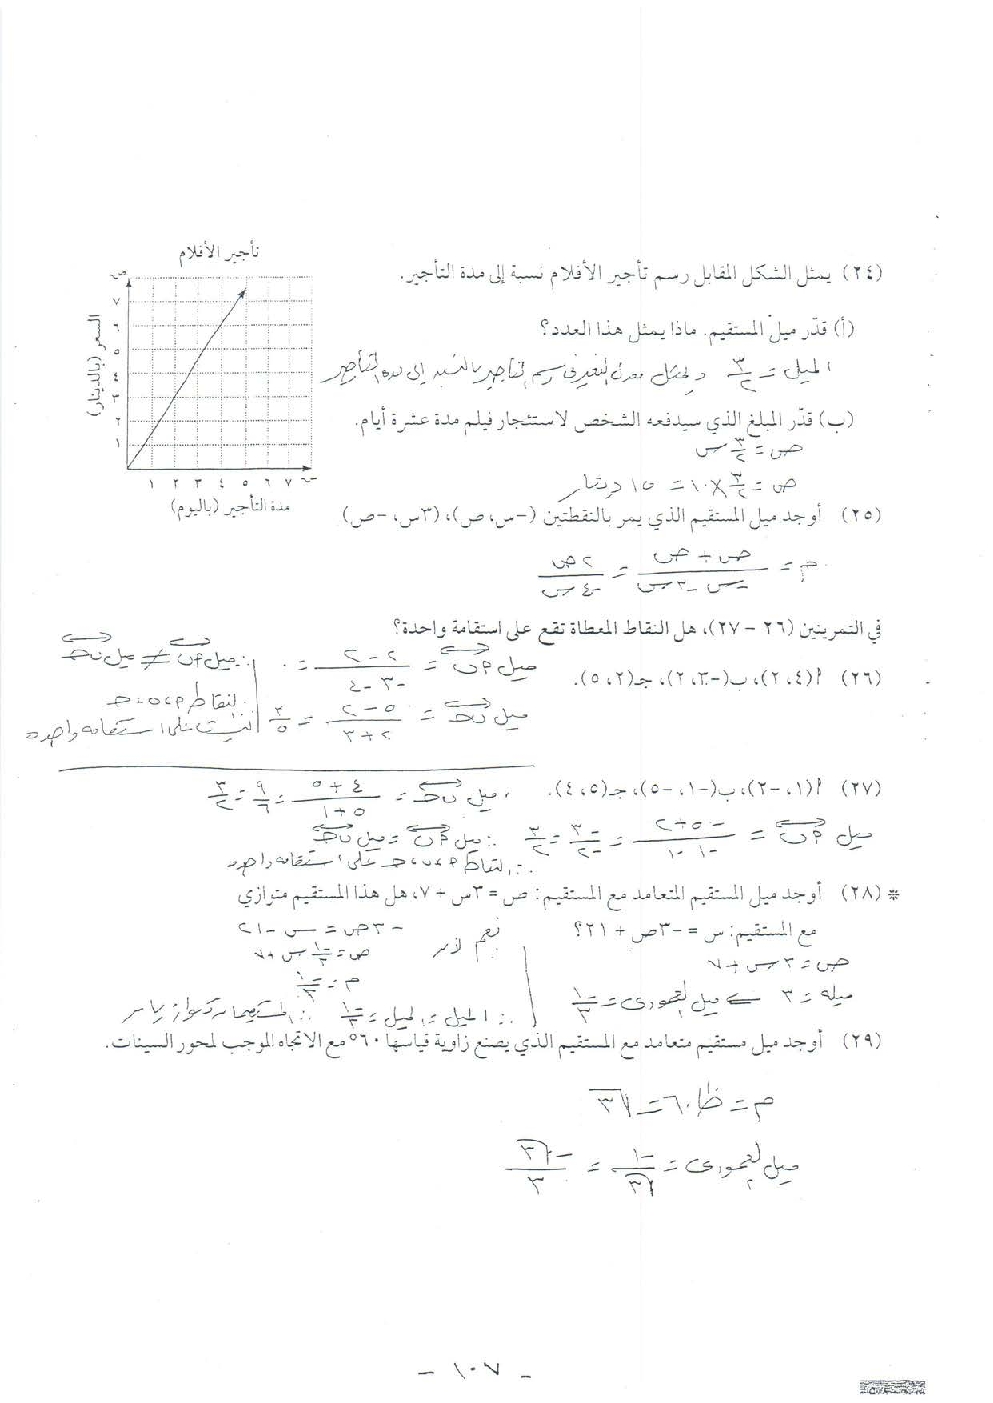 تأجير الأفلام
ص
السعر (بالدينار)
٧
٦
٥
٤
٣
٢
١
١ ٢ ٣ ٤ ٥ ٦ ٧ س
مدة التأجير (باليوم)
(٢٤) يمثل الشكل المقابل رسم تأجير الأفلام نسبة إلى مدة التأجير.
(أ) قدّر ميل المستقيم. ماذا يمثل هذا العدد؟
الميل = ٣/٢ ويمثل معدل التغير فى رسم التأجير بالنسبة إلى مدة التأجير
(ب) قدّر المبلغ الذي سيدفعه الشخص لاستئجار فيلم مدة عشرة أيام.
ص = ٣/٢ س
ص = ٣/٢ × ١٠ = ١٥ دينار
(٢٥) أوجد ميل المستقيم الذي يمر بالنقطتين (-س، ص)، (٣س، -ص)
م = (ص + ص)/(-س - ٣س) = ٢ص/-٤س
في التمرينين (٢٦ - ٢٧)، هل النقاط المعطاة تقع على استقامة واحدة؟
(٢٦) أ(٤، ٢)، ب(-٣، ٢)، جـ(٢، ٥).
ميل أب = (٢ - ٢)/(-٣ - ٤) = ٠
ميل ب جـ = (٥ - ٢)/(٢ + ٣) = ٣/٥
∴ ميل أب ≠ ميل ب جـ
∴ النقاط أ، ب، جـ
ليست على استقامة واحدة
(٢٧) أ(١، -٢)، ب(-١، -٥)، جـ(٥، ٤).
، ميل ب جـ = (٤ + ٥)/(٥ + ١) = ٩/٦ = ٣/٢
ميل أب = (-٥ + ٢)/(-١ - ١) = -٣/-٢ = ٣/٢
∴ ميل أب = ميل ب جـ
∴ النقاط أ، ب، جـ على استقامة واحدة
* (٢٨) أوجد ميل المستقيم المتعامد مع المستقيم: ص = ٣س + ٧، هل هذا المستقيم متوازي
مع المستقيم: س = -٣ص + ٢١؟
ص = ٣س + ٧
ميله = ٣ ⇐ ميل العمودى = -١/٣
نعم
لأن
-٣ص = س - ٢١
ص = -١/٣ س + ٧
م = -١/٣
∴ الميل = الميل = -١/٣ ∴ المستقيمان متوازيان
(٢٩) أوجد ميل مستقيم متعامد مع المستقيم الذي يصنع زاوية قياسها ٦٠° مع الاتجاه الموجب لمحور السينات.
م = ظا ٦٠ = √٣
ميل العمودى = -١/√٣ = -√٣/٣
- ١٠٧ -